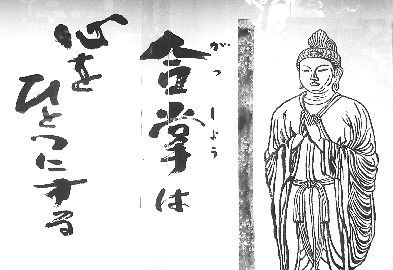 合掌は
がっしょう
心を
ひとつにする